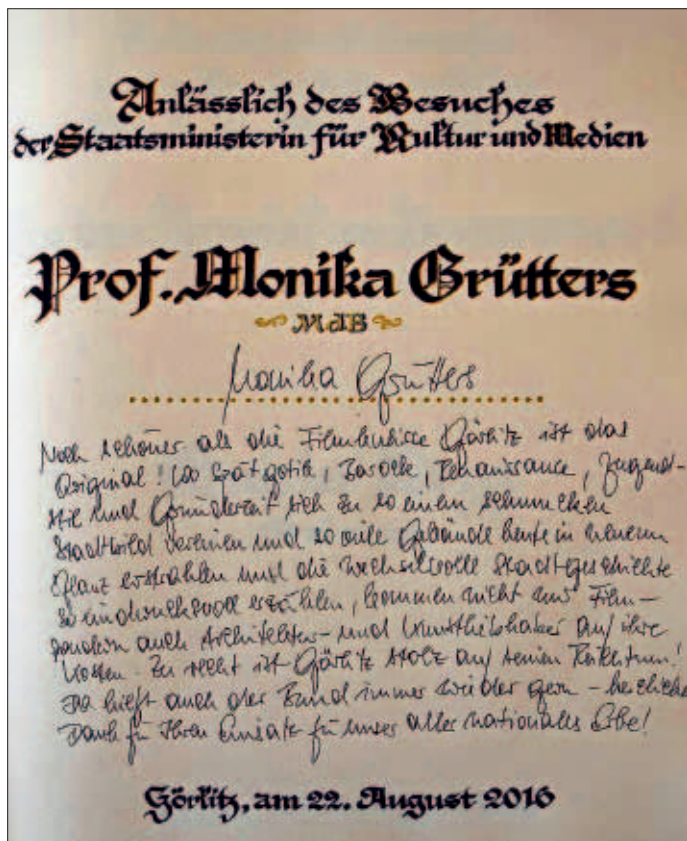 Anlässlich des Besuches
der Staatsministerin für Kultur und Medien
Prof. Monika Grütters
MdB
Monika Grütters
Noch schöner als die Filmkulisse Görlitz ist das
Original! Wo Spätgotik, Barock, Renaissance, Jugend-
stil und Gründerzeit sich zu so einem schmucken
Stadtbild vereinen und so viele Gebäude heute in neuem
Glanz erstrahlen und die wechselvolle Stadtgeschichte
so eindrucksvoll erzählen, kommen nicht nur Film-
sondern auch Architektur- und Kunstliebhaber auf ihre
Kosten. Zu recht ist Görlitz stolz auf seinen Reichtum!
Da hilft auch der Bund immer wieder gern - herzlichen
Dank für Ihren Einsatz für unser aller nationales Erbe!
Görlitz, am 22. August 2016